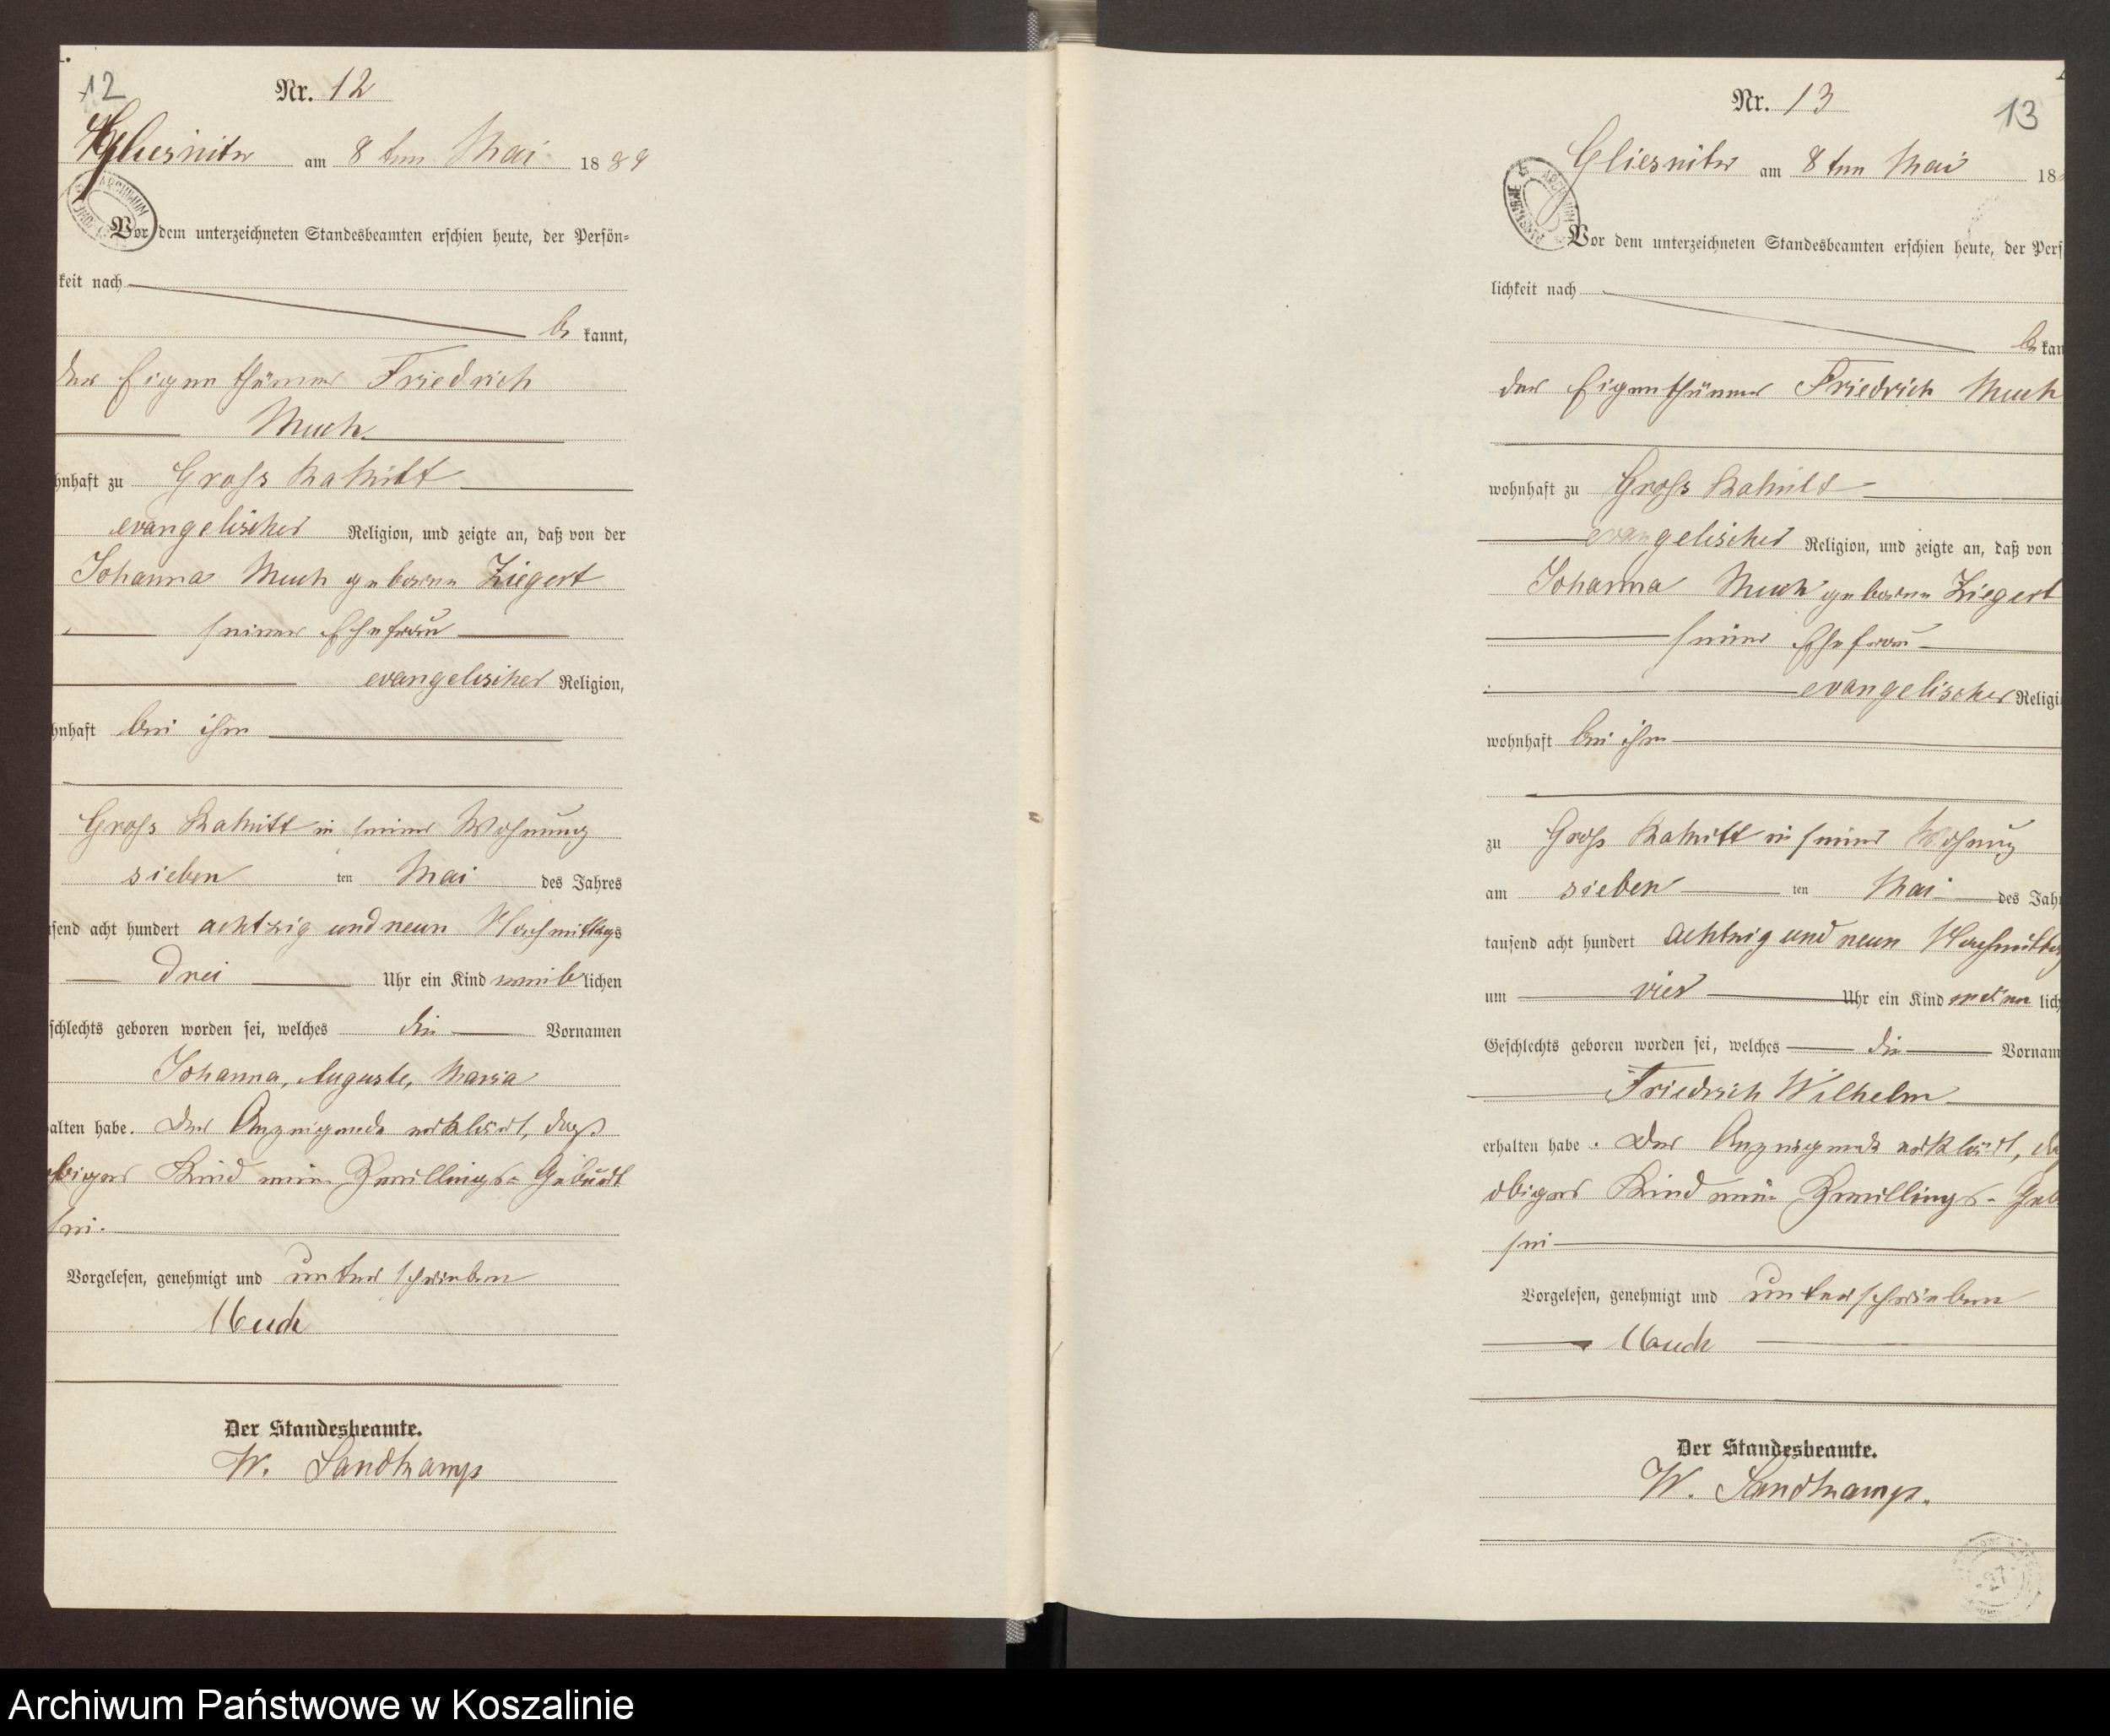 12
Nr. 12
Gliesnitz am 8ten Mai 1889
Vor dem unterzeichneten Standesbeamten erschien heute, der Persön=
keit nach
be kannt,
der Eigenthümer Friedrich
Much
hnhaft zu Gross Rakitt
evangelischer Religion, und zeigte an, daß von der
Johanna Much geborene Ziegert
seiner Ehefrau
evangelischer Religion,
hnhaft bei ihm
Gross Rakitt in seiner Wohnung
sieben ten Mai des Jahres
send acht hundert achtzig und neun Nachmittags
drei Uhr ein Kind weib lichen
schlechts geboren worden sei, welches die Vornamen
Johanna, Auguste, Maria
alten habe. Der Anzeigende erklärt, dass
obiges Kind eine Zwillings-Geburt
sei.
Vorgelesen, genehmigt und unterschrieben
Much
Der Standesbeamte.
W. Sandkamp
Nr. 13
13
Gliesnitz am 8ten Mai 18
Vor dem unterzeichneten Standesbeamten erschien heute, der Pers
lichkeit nach
be kan
der Eigenthümer Friedrich Much
wohnhaft zu Gross Rakitt
evangelischer Religion, und zeigte an, daß von
Johanna Much geborene Ziegert
seiner Ehefrau
evangelischer Religi
wohnhaft bei ihm
zu Gross Rakitt in seiner Wohnung
am sieben ten Mai des Jah
tausend acht hundert achtzig und neun Nachmittag
um vier Uhr ein Kind männ lich
Geschlechts geboren worden sei, welches die Vornam
Friedrich Wilhelm
erhalten habe. Der Anzeigende erklärt, da
obiges Kind eine Zwillings-Geb
sei
Vorgelesen, genehmigt und unterschrieben
Much
Der Standesbeamte.
W. Sandkamp.
Archiwum Państwowe w Koszalinie